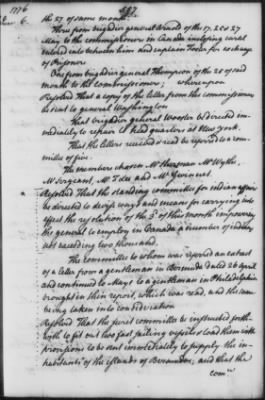 1776
June 6.
387
the 27 of same month.
Three from brigadier general Arnold of the 17, 25 & 27
May, to the commissioners in Canada inclosing cartel
entered into between him and captain Foster for exchange
of Prisoners
One from brigadier general Thompson of the 25 of said
month to the Commissioners; whereupon
Resolved That a copy of the letter from the commissioners
be sent to general Washington
That brigadier general Wooster be directed im-
mediately to repair to head quarters at New York.
That the letters received and read be referred to a com-
mittee of five.
The members chosen Mr Sherman Mr Wythe,
Mr Sergeant, Mr F Lee and Mr Gwinnet.
Resolved That the standing committee for indian affairs
be directed to devise ways and means for carrying into
effect the resolution of the 3d of this month impowering
the general to employ in Canada a number of indians
not exceeding two thousand.
The Committee to whom was referred an extract
of a letter from a gentleman in Bermuda dated 26 april
and continued to May 1 to a gentleman in Philadelphia
brought in their report, which was read, and the same
being taken into consideration
Resolved That the secret committee be instructed forth-
with to fit out two fast sailing vessels & load them with
provisions to be sent immediately to supply the in-
habitants of the islands of Bermudas; and that the